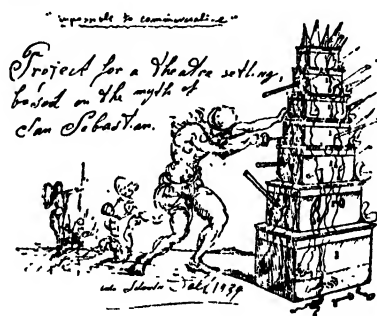 "impossible to commercialize"
Project for a theatre setting,
based on the myth of
San Sebastian.
Salvador Dalí 1939